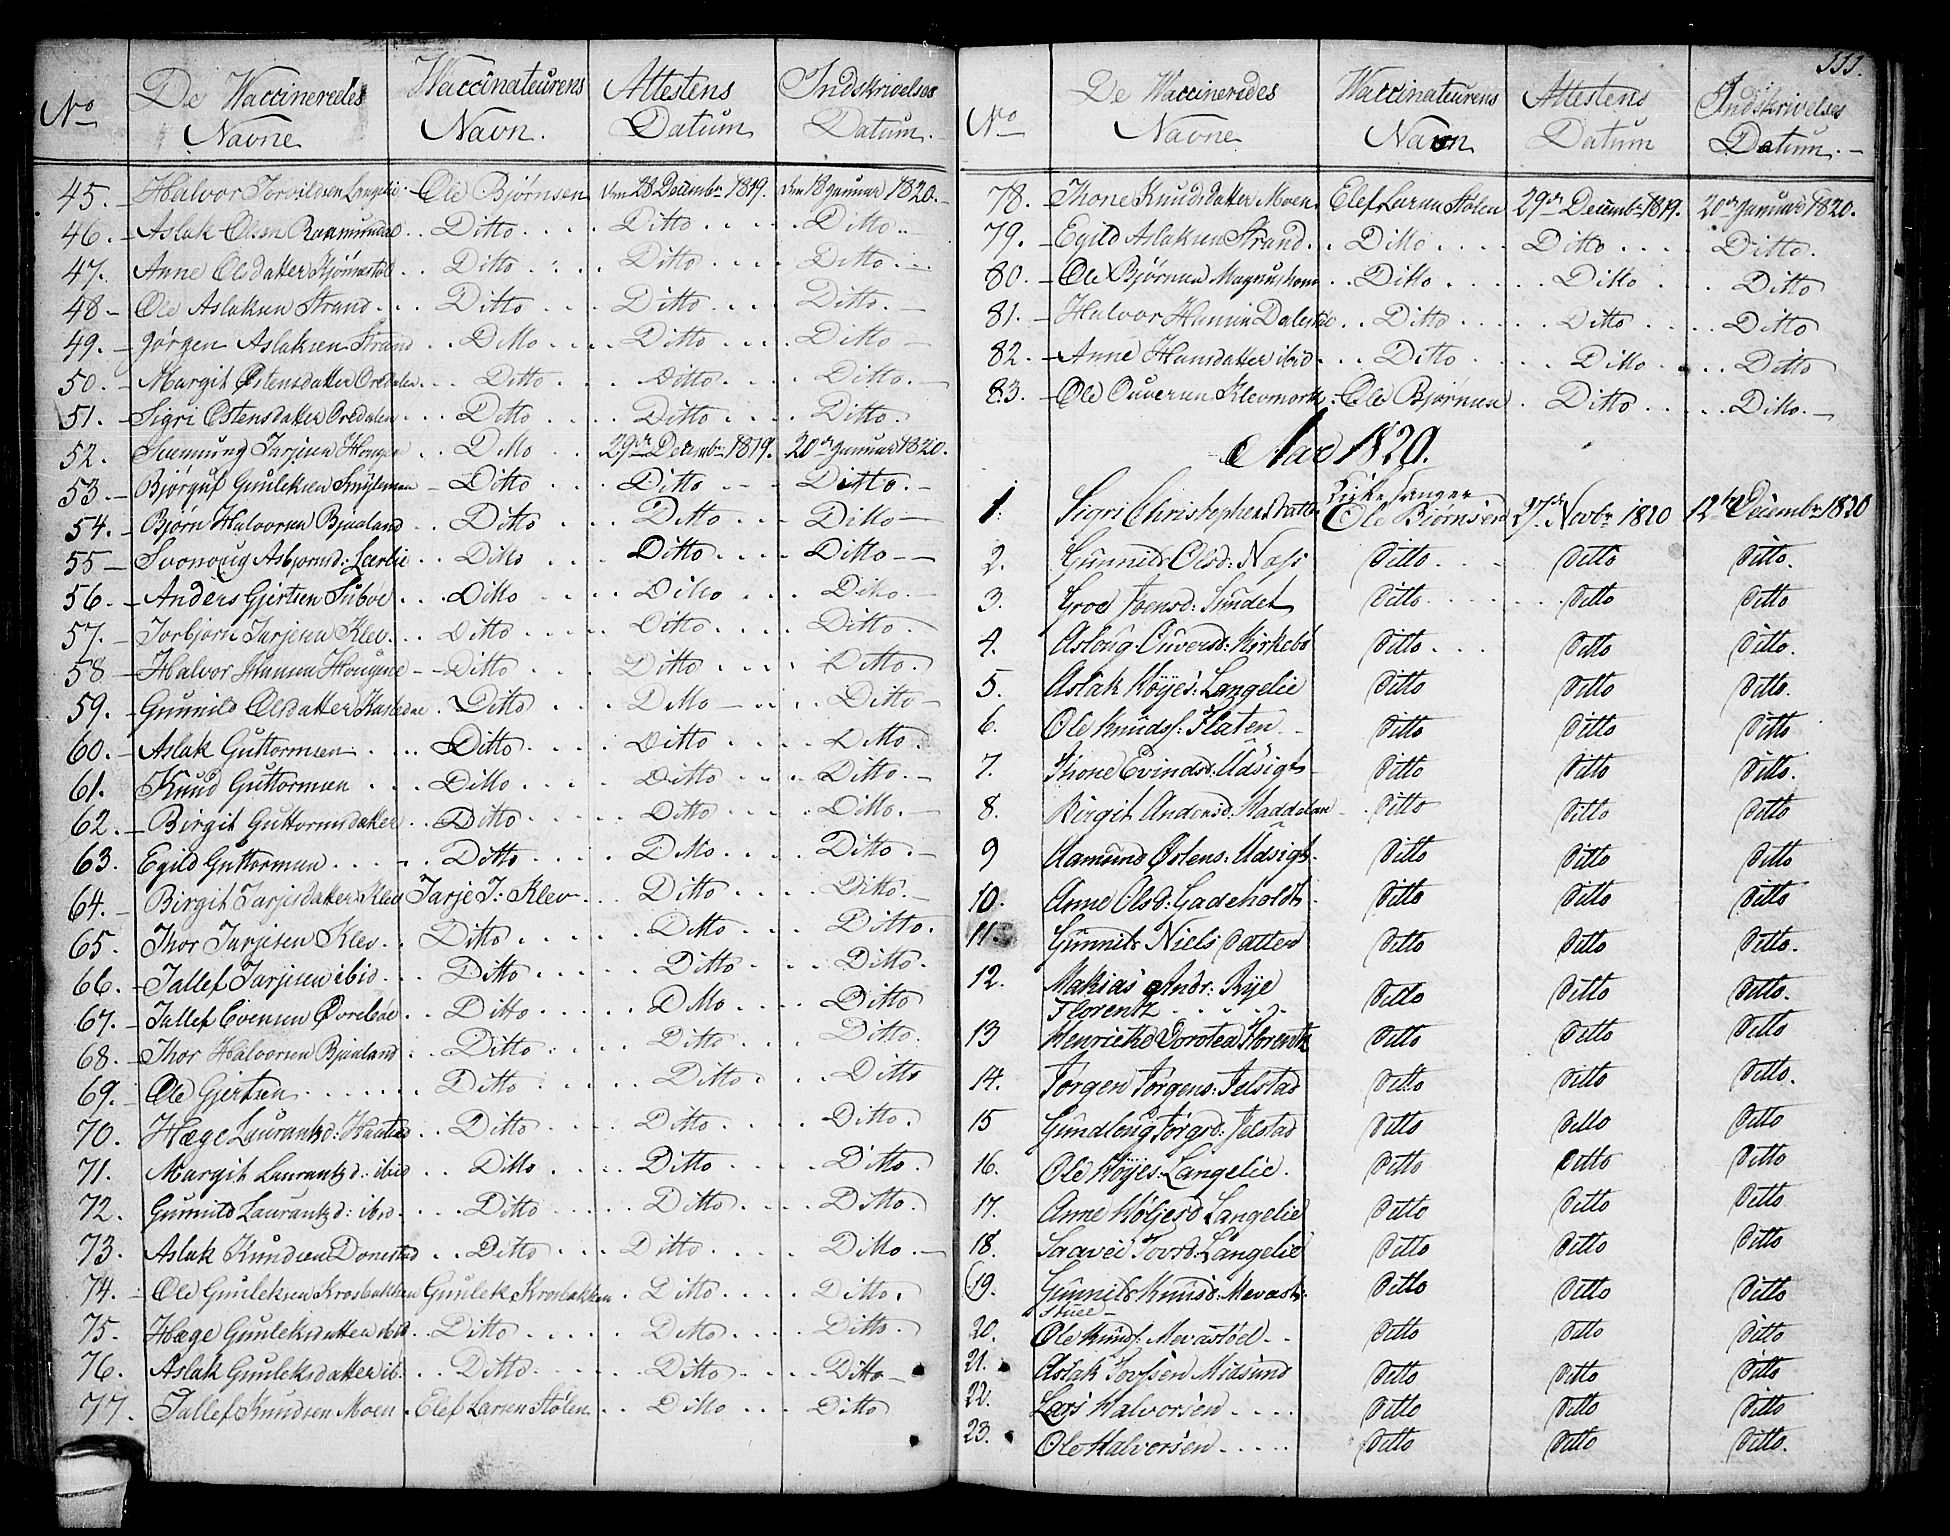 No De Vaccineredes Navne Vaccinateurens Navn. Attestens Datum Indskrivelses Datum.
45. Halvor Torvildsen Langelie Ole Bjørnsen den 28 Decembr 1819. den 18 Januar 1820.
46. Aslak Olsen Ditto Ditto Ditto
47. Anne Olsdatter Ditto Ditto Ditto
48 Ole Aslaksen Strand Ditto Ditto Ditto
49. Jørgen Aslaksen Strand Ditto Ditto Ditto
50. Margit Østensdatter Ovedalen Ditto Ditto Ditto
51. Sigri Østensdatter Ovedalen Ditto Ditto Ditto
52. Tarjesen Hougen Ditto 29de Decembr 1819. 20de Januar 1820.
53 Bjørguf Gunleksen Ditto Ditto Ditto
54. Bjørn Halvorsen Bjaaland Ditto Ditto Ditto
55 Asbjørnsd: Ditto Ditto Ditto
56. Anders Gjertsen Ditto Ditto Ditto
57. Torbjørn Tarjesen Klev Ditto Ditto Ditto
58 Halvor Hansen Hougene Ditto Ditto Ditto
59. Gunnild Olsdatter Ditto Ditto Ditto
60. Aslak Guttormsen Ditto Ditto Ditto
61. Knud Guttormsen Ditto Ditto Ditto
62. Birgit Guttormsdatter Ditto Ditto Ditto
63. Egild Guttormsen Ditto Ditto Ditto
64. Birgit Tarjesdatter Klev Tarje T: Klev Ditto Ditto
65. Thor Tarjesen Klev Ditto Ditto Ditto
66. Tallef Tarjesen ibid Ditto Ditto Ditto
67. Tallef Evensen Øvrebøe Ditto Ditto Ditto
68. Thor Halvorsen Bjaaland Ditto Ditto Ditto
69. Ole Gjertsen Ditto Ditto Ditto
70. Hæge Laurantzd: Ditto Ditto Ditto
71. Margit Laurantzd: ibid Ditto Ditto Ditto
72. Gunnild Laurantzd: ibid Ditto Ditto Ditto
73. Aslak Knudsen Donestad Ditto Ditto Ditto
74. Ole Gunleksen Krosbakken Gunlek Krosbakken Ditto Ditto
75. Hæge Gunleksdatter ibid Ditto Ditto Ditto
76. Aslak Gunleksdatter ib. Ditto Ditto Ditto
77. Tallef Knudsen Moen Elef Larsen Stølen Ditto Ditto
111.
No De Vaccineredes Navne Vaccinateurens Navn Attestens Datum Indskrivelses Datum.
78. Thone Knudsdatter Moen Elef Larsen Stølen 29de Decembr 1819. 20de Januar 1820.
79. Egild Aslaksen Strand Ditto Ditto Ditto
80. Ole Bjørnsen Ditto Ditto Ditto
81. Halvor Hansen Dalestøl Ditto Ditto Ditto
82. Anne Hansdatter ibid Ditto Ditto Ditto
83. Ole Ouversen Ole Bjørnsen Ditto Ditto
Aar 1820.
1. Sigri Christophersdatter Kirkesanger Ole Bjørnsen 27de Novbr 1820 12te Decembr 1820
2. Gunnild Olsd: Ditto Ditto Ditto.
3. Groe Joensd: Ditto Ditto Ditto
4. Asloug Ouversd: Kirkebø Ditto Ditto Ditto.
5. Aslak Høyes: Langelie Ditto Ditto Ditto.
6. Ole Knuds: Flaten Ditto Ditto Ditto
7. Thone Evindsd: Udsigt Ditto Ditto Ditto.
8. Birgit Andersd: Ditto Ditto Ditto
9 Aamund Østens: Udsigt Ditto Ditto Ditto
10. Anne Olsd: Gadeholdt Ditto Ditto Ditto
11. Gunnild Nielsdatter Ditto Ditto Ditto.
12. Mathias Andr: Rye Florentz Ditto Ditto Ditto.
13 Henriette Dorotea Florentz Ditto Ditto Ditto
14. Jørgen Jørgens: Jelstad Ditto Ditto Ditto.
15 Gundloug Jørgd: Jelstad Ditto Ditto Ditto
16. Ole Høyes: Langelie. Ditto Ditto Ditto
17. Anne Høljesd Langelie Ditto Ditto Ditto
18. Tovsd: Langelie Ditto Ditto Ditto
19. Gunnild Knudsd: Ditto Ditto Ditto
20. Ole Knuds: Ditto Ditto Ditto
21. Aslak Ditto Ditto Ditto
22. Lars Halvorsen Ditto Ditto Ditto
23. Ole Halvorsen Ditto Ditto Ditto.